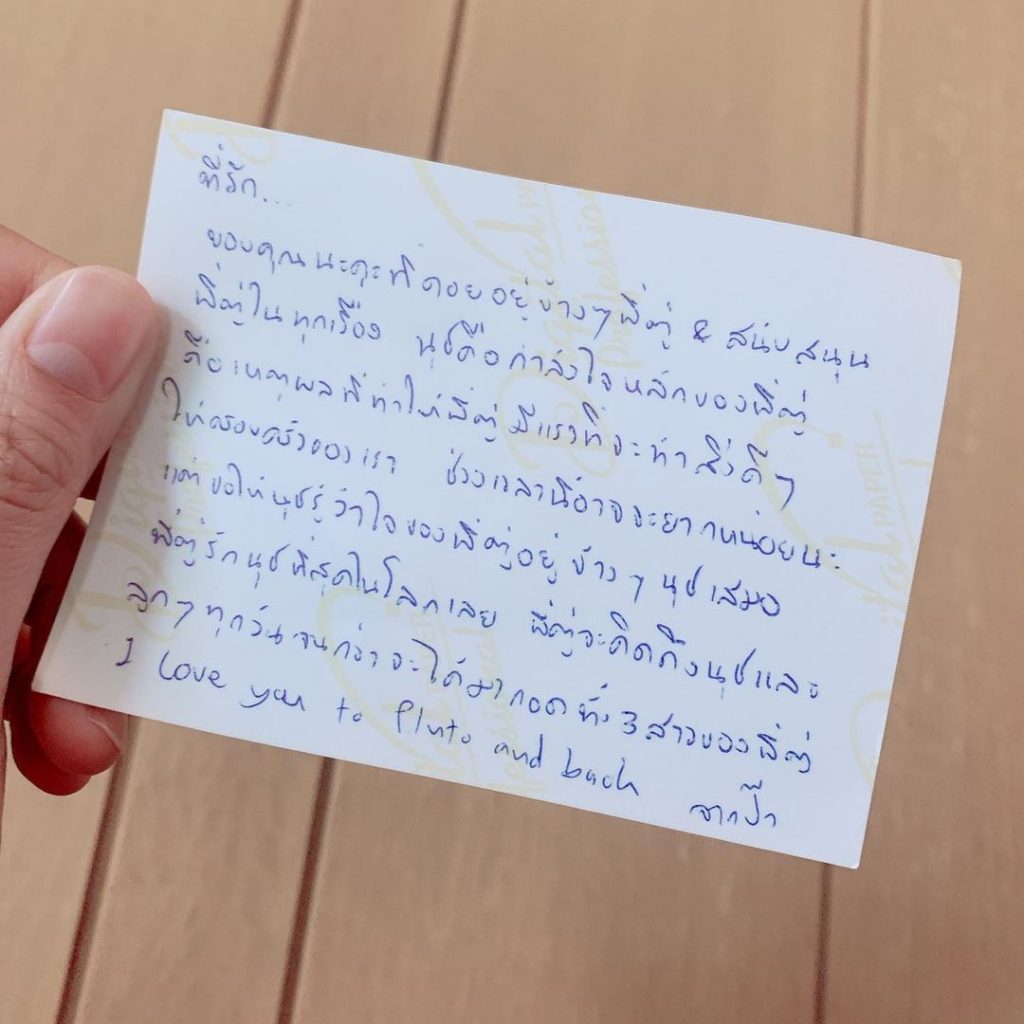 ที่รัก...
ขอบคุณนะคะที่คอยอยู่ข้างๆพี่ตู่ & สนับสนุน
พี่ตู่ในทุกเรื่อง นุชคือกำลังใจหลักของพี่ตู่
คือเหตุผลที่ทำให้พี่ตู่มีแรงที่จะทำสิ่งดีๆ
ให้ครอบครัวของเรา ช่วงเวลานี้อาจจะยากหน่อยนะ
แต่ขอให้นุชรู้ว่าใจของพี่ตู่อยู่ข้างๆนุชเสมอ
พี่ตู่รักนุชที่สุดในโลกเลย พี่ตู่จะคิดถึงนุชและ
ลูกๆทุกวันจนกว่าจะได้มากอดทั้ง 3 สาวของพี่ตู่
I love you to Pluto and back
จากป๊า
Digital PAPER
Professional